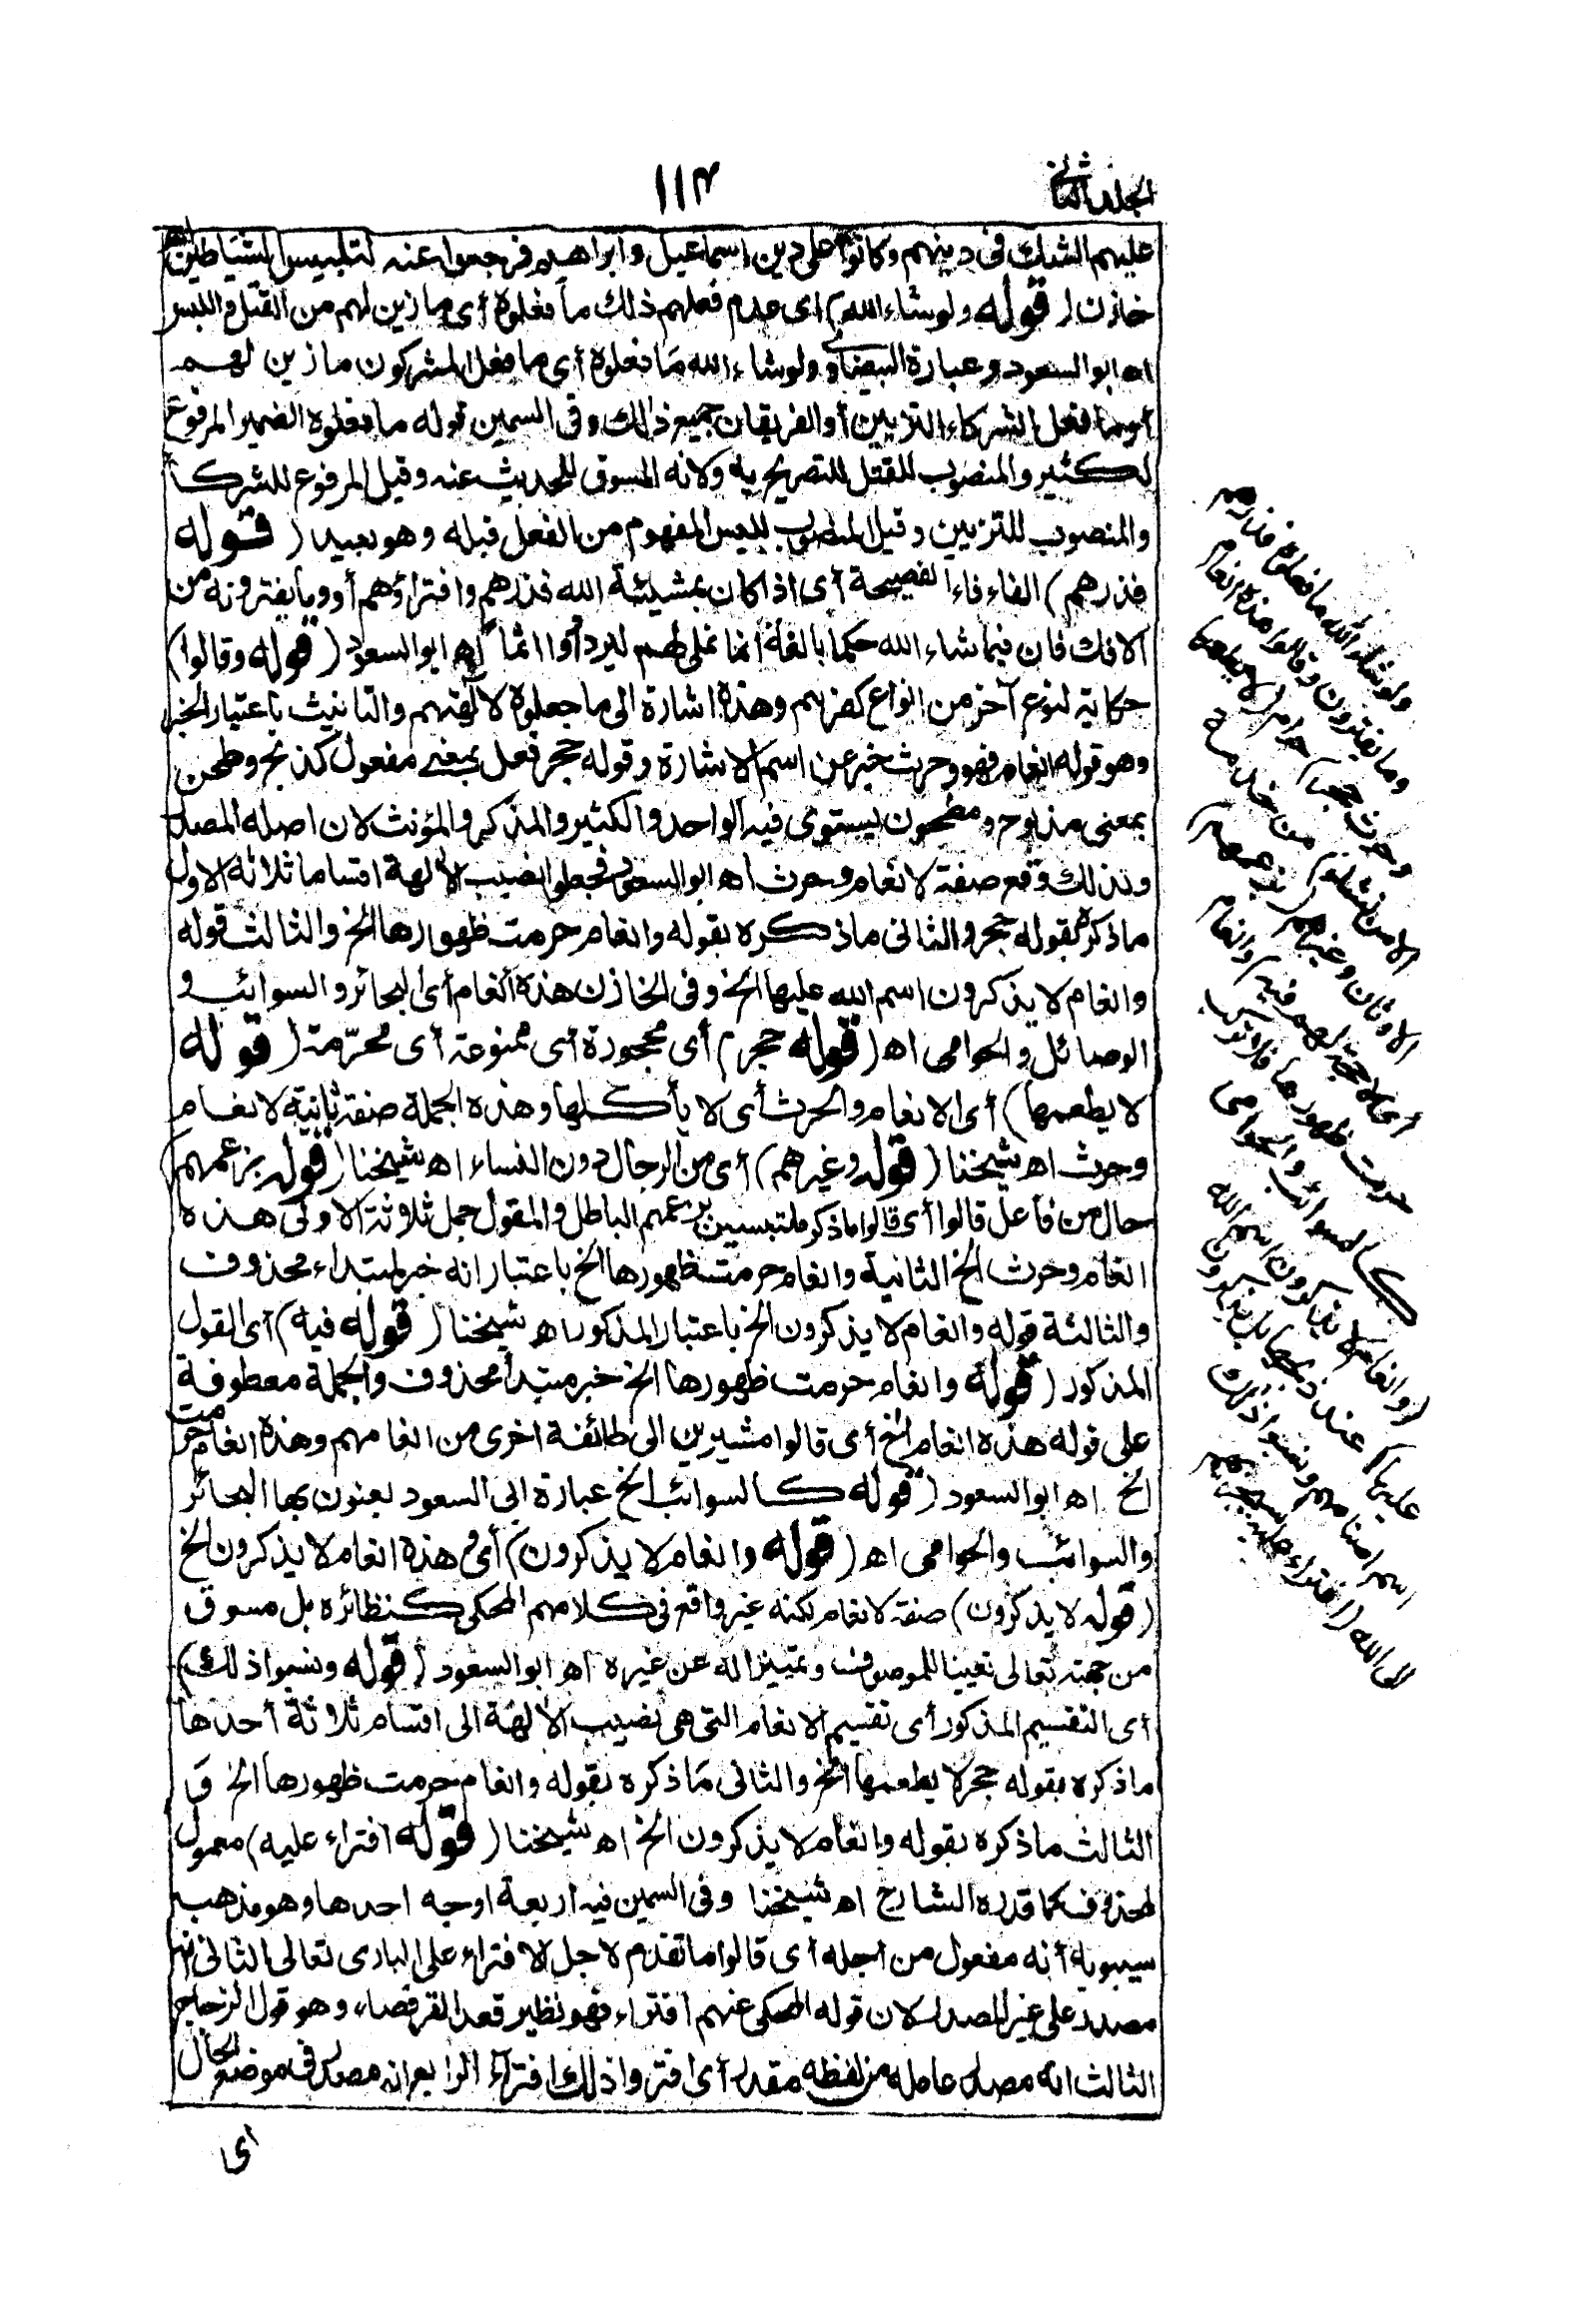 الجلد الثاني
١١٣
عليهم الشك في دينهم وكانوا على دين اسماعيل وابراهيم فرجعوا عنه لتلبيس الشياطين اهـ
خازن (قوله ولو شاء الله) اى عدم فعلهم ذلك ما فعلوه أى ما زين لهم من القتل واللبس
اه ابو السعود وعبارة البيضاوى ولو شاء الله ما فعلوه أى ما فعل المشركون ما زين لهم
أو ما فعل الشركاء التزيين أو الفريقان جميع ذلك وفى السمين قوله ما فعلوه الضمير المرفوع
لكثير والمنصوب للقتل للتصريح به ولانه المسوق للحديث عنه وقيل المرفوع للشركا
والمنصوب للتزيين وقيل المنصوب للبس المفهوم من الفعل قبله وهو بعيد (قوله
فذرهم) الفاء فاء الفصيحة أى اذا كان بمشيئة الله فذرهم وافتراؤهم أو وما يفترونه من
الافك فان فيما شاء الله حكما بالغة انما نملى لهم ليزدادوا اثما اه ابو السعود (قوله وقالوا)
حكاية لنوع آخر من انواع كفرهم وهذه اشارة الى ما جعلوه لآلهتهم والتانيث باعتبار الخبر
وهو قوله انعام فهو وحرث خبر عن اسم الاشارة وقوله حجر فعل بمعنى مفعول كذبح وطحن
بمعنى مذبوح ومطحون يستوى فيه الواحد والكثير والمذكر والمؤنث لان اصله المصدر
ولذلك وقع صفة لانعام وحرث اه ابو السعود فجعلوا نصيب الآلهة اقساما ثلاثة الاول
ما ذكره بقوله حجر والثانى ما ذكره بقوله وانعام حرمت ظهورها الخ والثالث قوله
وانعام لا يذكرون اسم الله عليها الخ وفى الخازن هذه أنعام أى البحائر والسوائب و
الوصائل والحوامى اه (قوله حجر) أى محجورة أى ممنوعة أى محرّمة (قوله
لا يطعمها) أى الانعام والحرث أى لا يأكلها وهذه الجملة صفة ثانية لانعام
وحرث اه شيخنا (قوله وغيرهم) أى من الرجال دون النساء اه شيخنا (قوله بزعمهم)
حال من فاعل قالوا أى قالوا ما ذكر ملتبسين بزعمهم الباطل والمقول جمل ثلاثة الاولى هذه
انعام وحرث الخ الثانية وانعام حرمت ظهورها الخ باعتبار انه خبر لمبتداء محذوف
والثالثة قوله وانعام لا يذكرون الخ باعتبار المذكور اه شيخنا (قوله فيه) أى القول
المذكور (قوله وانعام حرمت ظهورها الخ خبر مبتدأ محذوف والجملة معطوفة
على قوله هذه انعام الخ أى قالوا مشيرين الى طائفة اخرى من انعامهم وهذه انعام حرمت
الخ اه ابو السعود (قوله كالسوائب الخ عبارة ابى السعود يعنون بها البحائر
والسوائب والحوامى اه (قوله وانعام لا يذكرون) أى وهذه انعام لا يذكرون الخ
(قوله لا يذكرون) صفة لانعام لكنه غير واقع فى كلامهم المحكى كنظائره بل مسوق
من جهته تعالى تعيينا للموصوف وتمييزا له عن غيره اه ابو السعود (قوله ونسبوا ذلك)
أى التقسيم المذكور أى تقسيم الانعام التى هى نصيب الآلهة الى اقسام ثلاثة أحدها
ما ذكره بقوله حجر لا يطعمها الخ والثانى ما ذكره بقوله وانعام حرمت ظهورها الخ و
الثالث ما ذكره بقوله وانعام لا يذكرون الخ اه شيخنا (قوله افتراء عليه) معمول
لمحذوف كما قدره الشارح اه شيخنا وفى السمين فيه اربعة اوجه احدها وهو مذهب
سيبويه أنه مفعول من اجله أى قالوا ما تقدم لاجل الافتراء على البارى تعالى الثانى انه
مصدر على غير المصدر لان قوله المحكى عنهم افتراء فهو نظير قعد القرفصاء وهو قول الزجاج
الثالث انه مصدر عامله من لفظه مقدر أى افتروا ذلك افتراء الرابع انه مصدر فى موضع الحال
اى
ولو شاء الله ما فعلوه فذرهم
وما يفترون وقالوا هذه انعام
وحرث حجر) حرام (لا يطعمها
الا من نشاء) من خدمة
الاوثان وغيرهم (بزعمهم)
أى لا حجة لهم فيه (وانعام
حرمت ظهورها) فلا تركب
كالسوائب والحوامى
(وانعام لا يذكرون اسم الله
عليها) عند ذبحها بل يذكرون
اسم اصنامهم ونسبوا ذلك
الى الله (افتراء عليه سيجزيهم